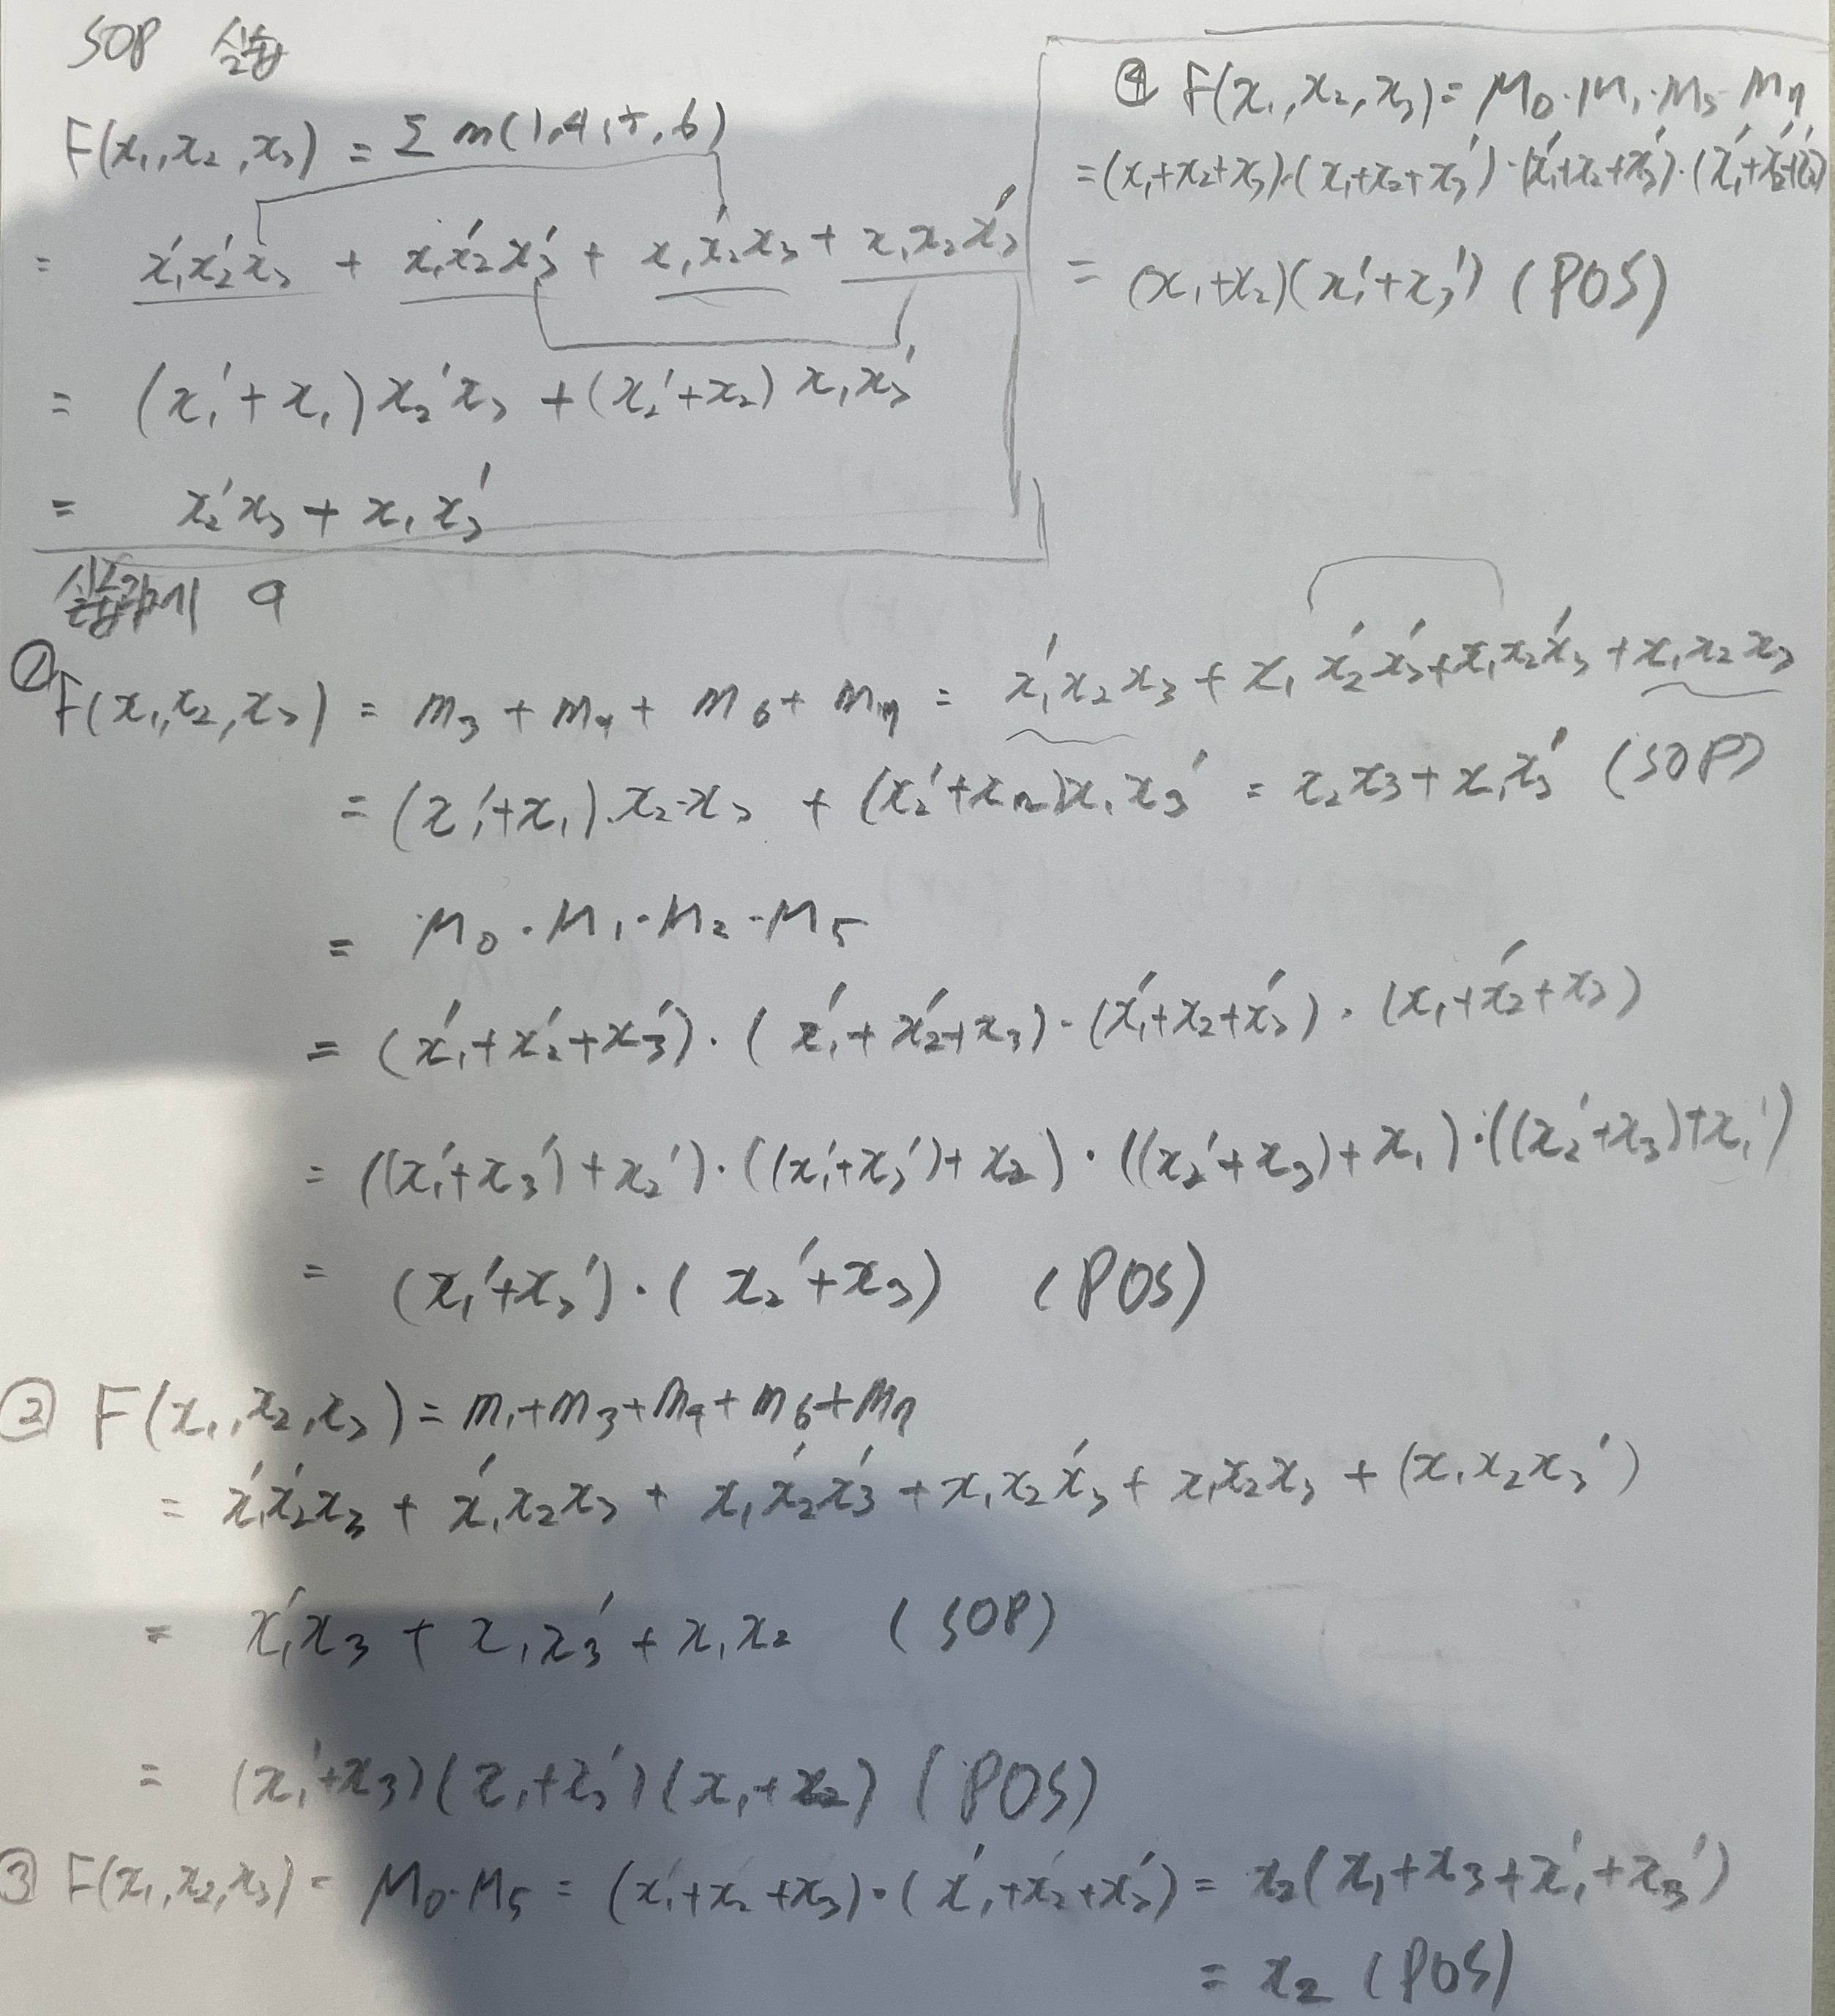 SOP 실습
F(x₁,x₂,x₃) = Σ m(1,4,5,6)
= x₁'x₂'x₃ + x₁x₂'x₃' + x₁x₂'x₃ + x₁x₂x₃'
= (x₁'+x₁)x₂'x₃ + (x₂'+x₂)x₁x₃'
= x₂'x₃ + x₁x₃'
④ F(x₁,x₂,x₃) = M₀·M₁·M₅·M₇
= (x₁+x₂+x₃)·(x₁+x₂+x₃')·(x₁'+x₂+x₃')·(x₁'+x₂'+x₃')
= (x₁+x₂)(x₁'+x₃') (POS)
실습과제 9
① F(x₁,x₂,x₃) = m₃ + m₄ + m₆ + m₇ = x₁'x₂x₃ + x₁x₂'x₃' + x₁x₂x₃' + x₁x₂x₃
= (x₁'+x₁)·x₂·x₃ + (x₂'+x₂)x₁x₃' = x₂x₃ + x₁x₃' (SOP)
= M₀·M₁·M₂·M₅
= (x₁'+x₂'+x₃')·(x₁'+x₂'+x₃)·(x₁'+x₂+x₃')·(x₁+x₂'+x₃)
= ((x₁'+x₃')+x₂')·((x₁'+x₃')+x₂)·((x₂'+x₃)+x₁)·((x₂'+x₃)+x₁')
= (x₁'+x₃')·(x₂'+x₃) (POS)
② F(x₁,x₂,x₃) = m₁+m₃+m₄+m₆+m₇
= x₁'x₂'x₃ + x₁'x₂x₃ + x₁x₂'x₃' + x₁x₂x₃' + x₁x₂x₃ + (x₁x₂x₃')
= x₁'x₃ + x₁x₃' + x₁x₂ (SOP)
= (x₁'+x₃)(x₁+x₃')(x₁+x₂) (POS)
③ F(x₁,x₂,x₃) = M₀·M₅ = (x₁'+x₂'+x₃)·(x₁'+x₂'+x₃') = x₂(x₁+x₃+x₁'+x₃')
= x₂ (POS)